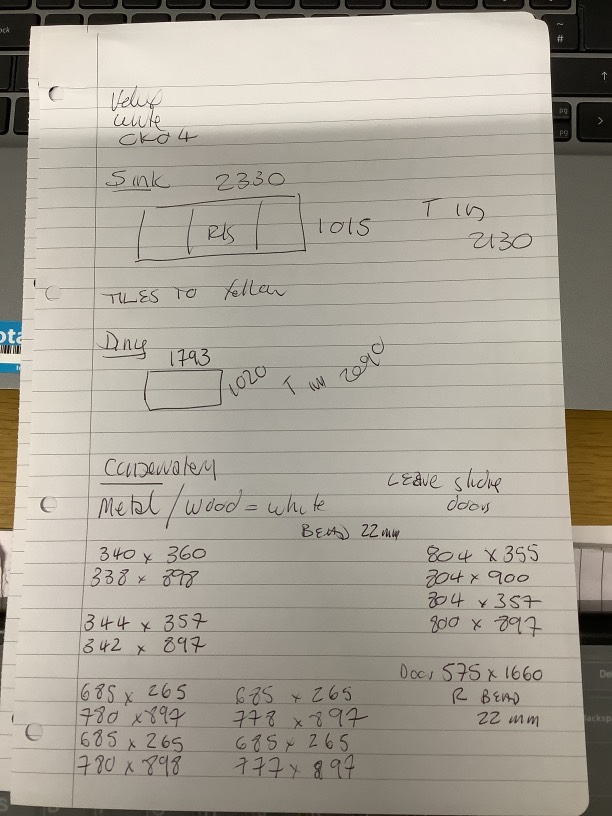 Velux
white
CK04
Sink 2330
R/S 1015 T in
2130
TILES TO Yellow
Diny
1793
1020 T in 2090
CONSERVATERY
Metal / Wood = white
LEAVE slide
doors
BEAD 22mm
340 x 360
338 x 898
344 x 357
342 x 897
804 x 355
804 x 900
804 x 357
800 x 897
Door 575 x 1660
R BEAD
22 mm
685 x 265 685 x 265
780 x 897 778 x 897
685 x 265 685 x 265
780 x 898 777 x 897